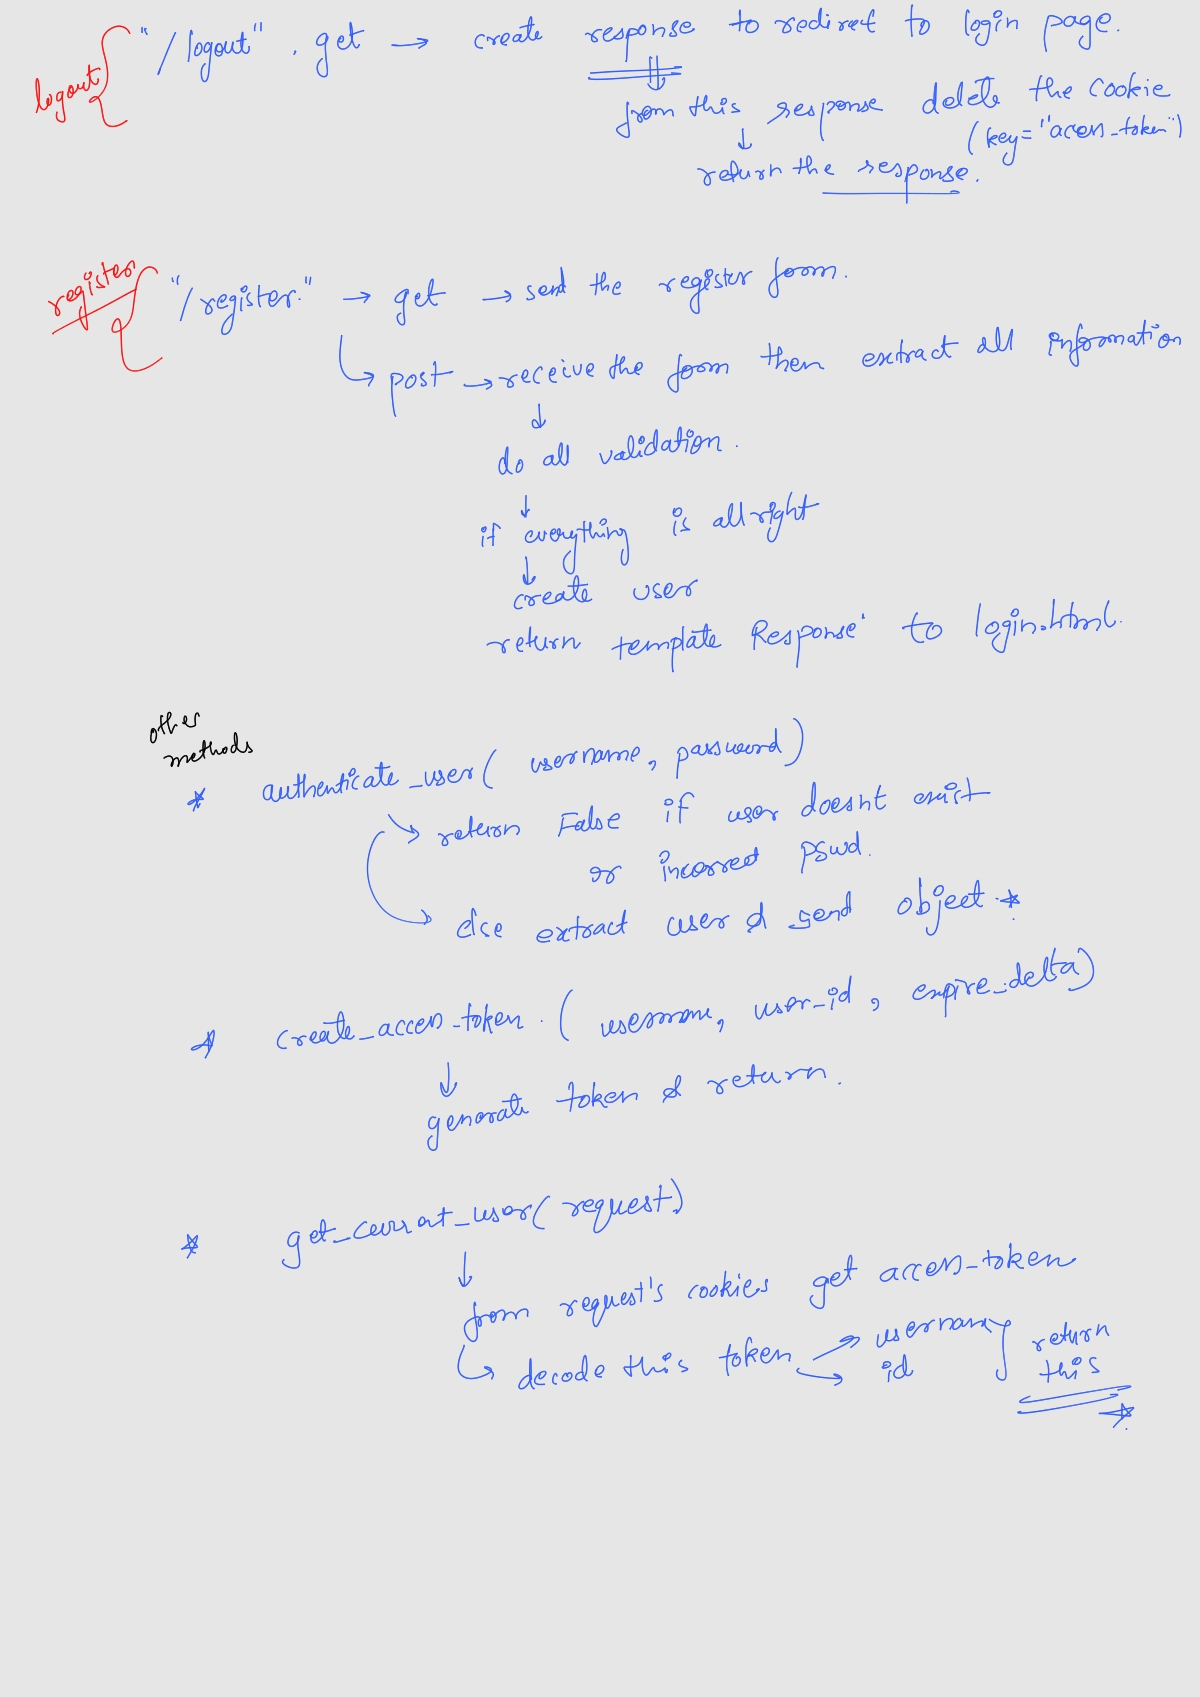 logout
"/logout" . get → create response to redirect to login page.
from this response delete the cookie
(key="access_token")
return the response.
register
"/register." → get → send the register form.
post → receive the form then extract all information
do all validation.
if everything is all right
create user
return template Response to login.html.
other
methods
* authenticate_user( username, password)
return False if user doesnt exist
or incorrect pswd.
else extract user & send object.*
* create_access_token. ( username, user_id, expire_delta)
generate token & return.
* get_current_user( request)
from request's cookies get access_token
decode this token → username
→ id
return
this